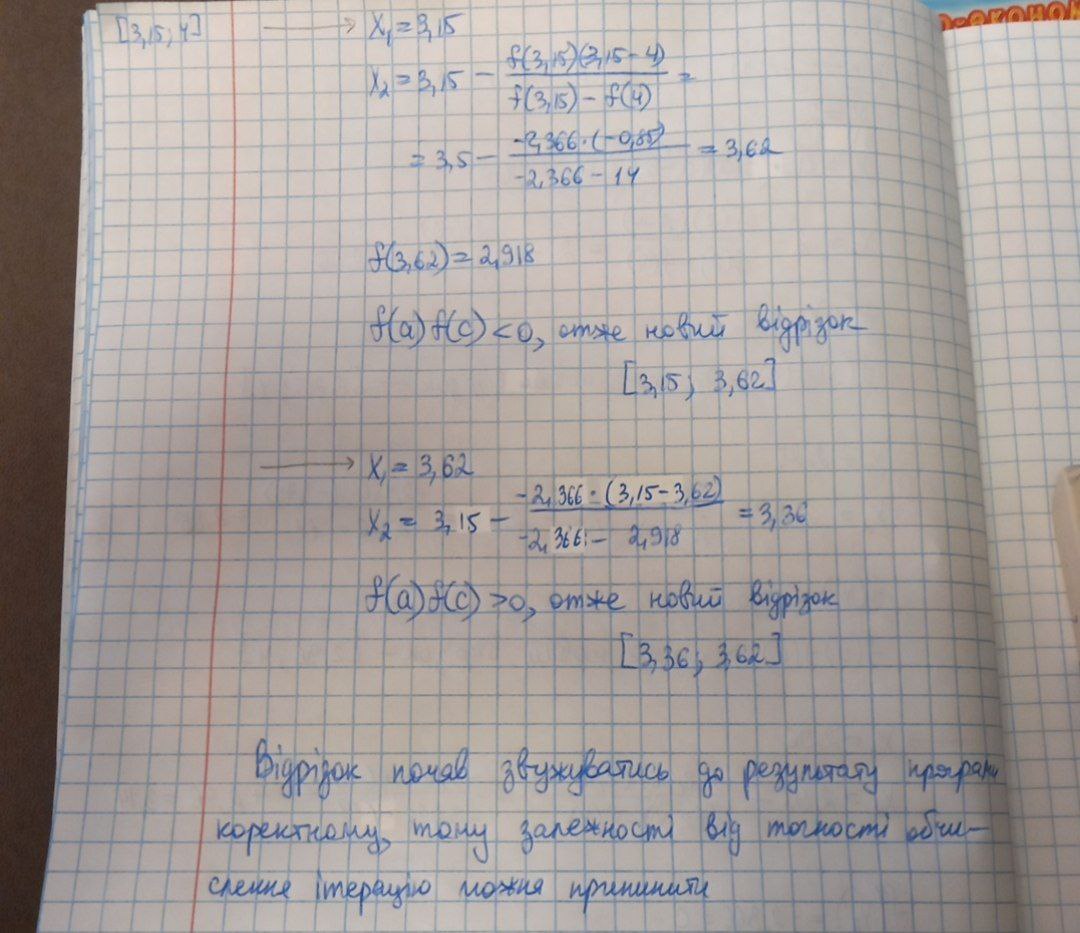 [3,15; 4] → x₁ = 3,15
x₂ = 3,15 − f(3,15)(3,15−4) / f(3,15) − f(4) =
= 3,5 − −2,366·(−0,85) / −2,366 − 14 = 3,62
f(3,62) = 2,918
f(a) f(c) < 0, отже новий відрізок
[3,15; 3,62]
→ x₁ = 3,62
x₂ = 3,15 − −2,366·(3,15−3,62) / −2,366 − 2,918 = 3,36
f(a) f(c) > 0, отже новий відрізок
[3,36; 3,62]
Відрізок почав звужуватись до результату
коректному, тому залежності від точності обчи-
слення ітерацію можна припинити